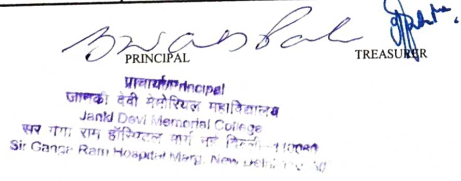 PRINCIPAL TREASURER
प्राचार्य/Principal
जानकी देवी मेमोरियल महाविद्यालय
Janki Devi Memorial College
सर गंगा राम हॉस्पिटल मार्ग नई दिल्ली
Sir Ganga Ram Hospital Marg, New Delhi